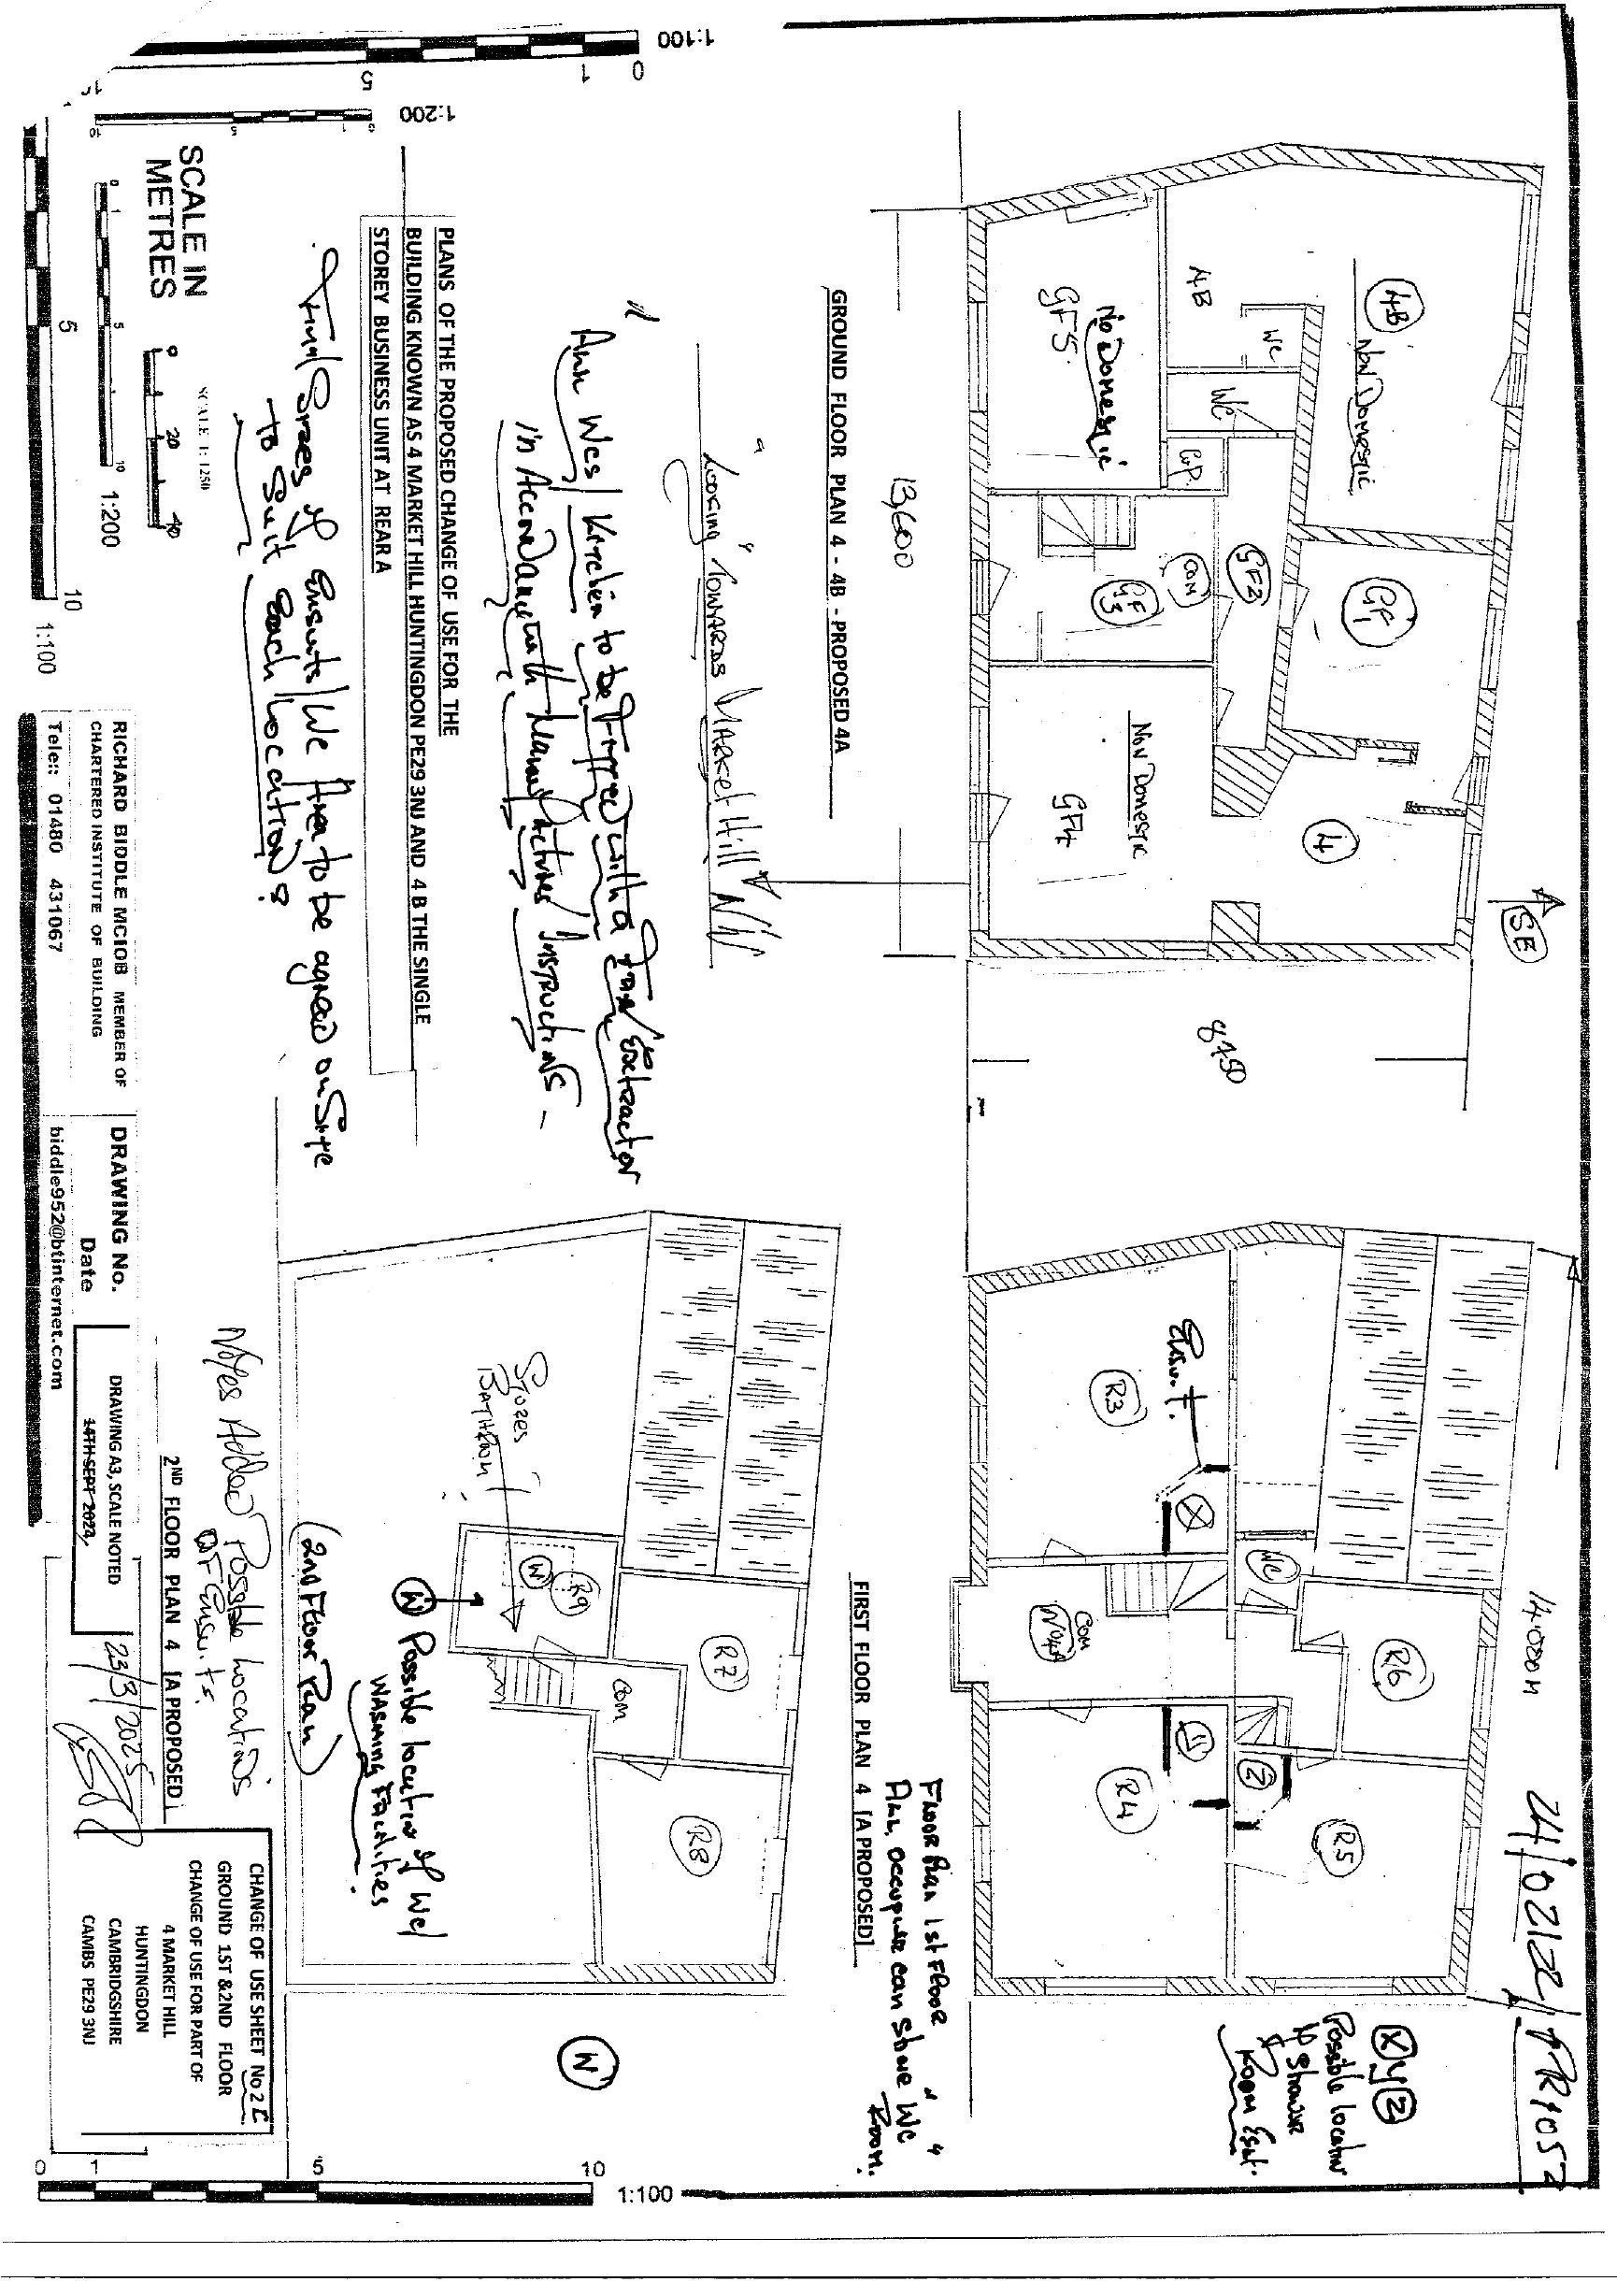 1:100
0
1
5
1:200
0
5
10
SCALE IN
METRES
0
1
5
10
1:200
SCALE 1: 1250
0
20
40
5
10
1:100
GROUND FLOOR PLAN 4 - 4B - PROPOSED 4A
4B
Non Domestic
4B
WC
WC
CuP.
No Domestic
GF5.
GF1
GF2
COM
GF
3
Non Domestic
GF4
4
SE
13,600
8750
"Looking Towards Market Hill NW
PLANS OF THE PROPOSED CHANGE OF USE FOR THE
BUILDING KNOWN AS 4 MARKET HILL HUNTINGDON PE29 3NJ AND 4 B THE SINGLE
STOREY BUSINESS UNIT AT REAR A
Kitchen to be
in Accordance with
Instructions -
Final Sizes of Ensuits/Wc Area to be agreed on Site
to Suit Each Location?
RICHARD BIDDLE MCIOB MEMBER OF
CHARTERED INSTITUTE OF BUILDING
Tele:: 01480 431067
DRAWING No.
Date
biddle952@btinternet.com
DRAWING A3, SCALE NOTED
14TH SEPT 2024
23/3/2025
FIRST FLOOR PLAN 4 [A PROPOSED]
Floor Plan 1st Floor
All occupier can share WC
Room.
R3
Ensuit.
X
WC
COM
No4A
R6
R4
R5
Z
14000
XYZ
Possible location
Shower
Room
2ND FLOOR PLAN 4 [A PROPOSED]
(2nd Floor Plan)
Stores
W
R9
R7
COM
R8
W
Possible location of Wc/
Washing Facilities.
Notes Added Possible Locations
OF Ensuits.
W
CHANGE OF USE SHEET No 2
GROUND 1ST &2ND FLOOR
CHANGE OF USE FOR PART OF
4 MARKET HILL
HUNTINGDON
CAMBRIDGSHIRE
CAMBS PE29 3NJ
0
1
5
10
1:100